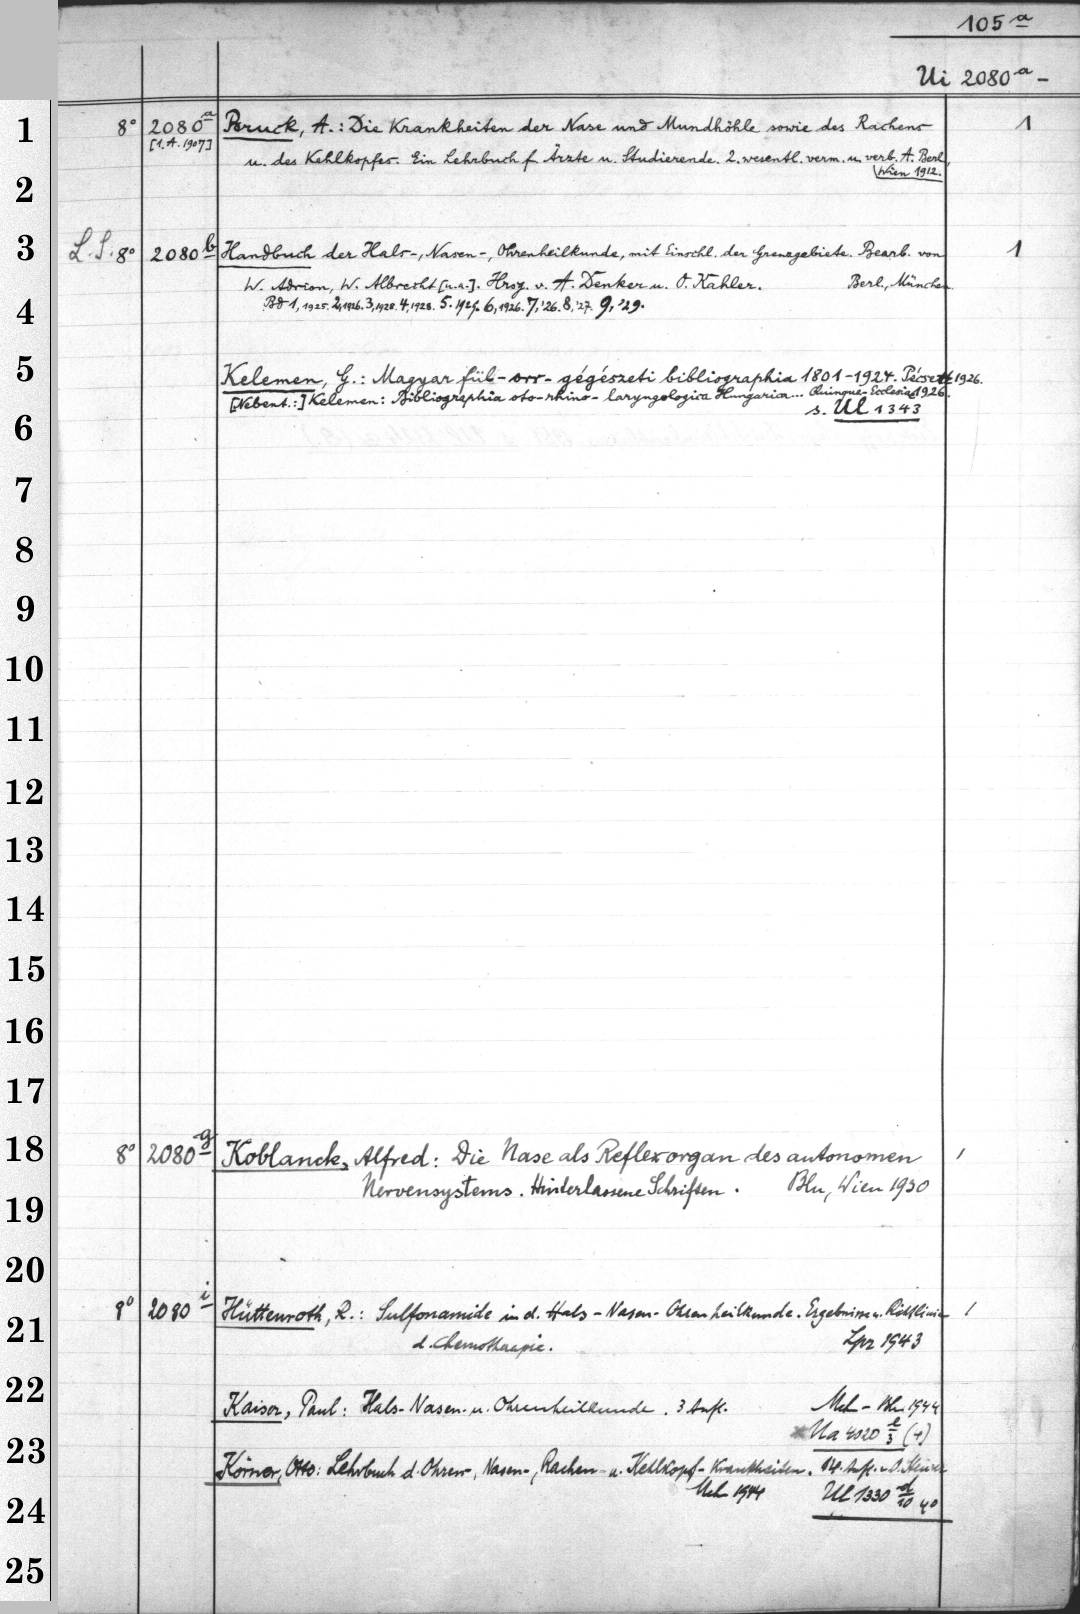 105 a
Ui 2080 a -
1 8° 2080 a Bruck, A.: Die Krankheiten der Nase und Mundhöhle sowie des Rachens 1
[1. A. 1907] u. des Kehlkopfes. Ein Lehrbuch f. Ärzte u. Studierende. 2. wesentl. verm. u. verb. A. Berl,
Wien 1912.
2
3 L.S. 8° 2080 b Handbuch der Hals-, Nasen-, Ohrenheilkunde, mit Einschl. der Grenzgebiete. Bearb. von 1
W. Adrion, W. Albrecht [u.a.]. Hrsg. v. A. Denker u. O. Kahler. Berl., München
4 Bd 1, 1925. 2, 1926. 3, 1928. 4, 1928. 5. 1929. 6, 1926. 7, '26. 8, '27. 9, '29.
5 Kelemen, G.: Magyar fül- orr- gégészeti bibliographia 1801-1924. Pécsett 1926.
[Nebent.:] Kelemen: Bibliographia oto-rhino-laryngologica Hungarica... Quinque-Ecclesiae 1926.
s. Ul 1343
6
7
8
9
10
11
12
13
14
15
16
17
18 8° 2080 g Koblanck, Alfred: Die Nase als Reflexorgan des autonomen 1
Nervensystems. Hinterlassene Schriften. Bln, Wien 1930
19
20
8° 2080 i Hüttenroth, R.: Sulfonamide in d. Hals-Nasen-Ohrenheilkunde. Ergebnisse u. Richtlinien 1
21 d. Chemotherapie. Lpz 1943
22 Kaiser, Paul: Hals-Nasen- u. Ohrenheilkunde. 3 Aufl. Mch - Bln 1944
Ua 4020 l/3 (+)
23 Körner, Otto: Lehrbuch d. Ohren-, Nasen-, Rachen- u. Kehlkopf-Krankheiten. 14. Aufl. v. O.
Mch 1944 Ul 1330 d/10 40
24
25